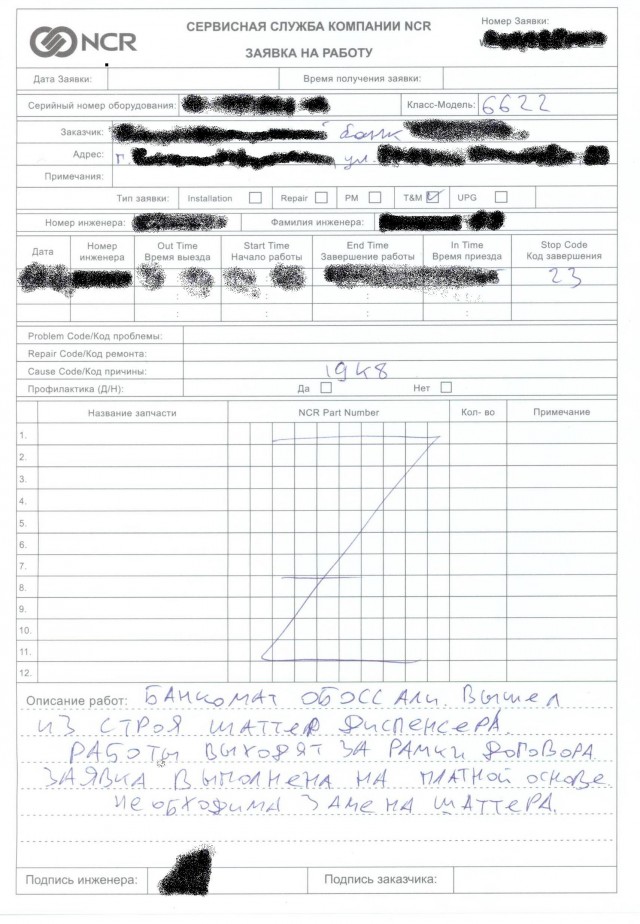 NCR
СЕРВИСНАЯ СЛУЖБА КОМПАНИИ NCR
ЗАЯВКА НА РАБОТУ
Номер Заявки:
Дата Заявки:
Время получения заявки:
Серийный номер оборудования:
Класс-Модель: 6622
Заказчик: банк
Адрес: г. ул.
Примечания:
Тип заявки: Installation Repair PM T&M UPG
Номер инженера: Фамилия инженера:
Дата Номер инженера Out Time Время выезда Start Time Начало работы End Time Завершение работы In Time Время приезда Stop Code Код завершения
23
: : : :
: : : :
Problem Code/Код проблемы:
Repair Code/Код ремонта:
Cause Code/Код причины: 19К8
Профилактика (Д/Н): Да Нет
Название запчасти NCR Part Number Кол- во Примечание
1.
2.
3.
4.
5.
6.
7.
8.
9.
10.
11.
12.
Описание работ: БАНКОМАТ ОБОССАЛИ. ВЫШЕЛ
ИЗ СТРОЯ ШАТТЕР ДИСПЕНСЕРА.
РАБОТЫ ВЫХОДЯТ ЗА РАМКИ ДОГОВОРА.
ЗАЯВКА ВЫПОЛНЕНА НА ПЛАТНОЙ ОСНОВЕ.
НЕОБХОДИМА ЗАМЕНА ШАТТЕРА.
Подпись инженера: Подпись заказчика: